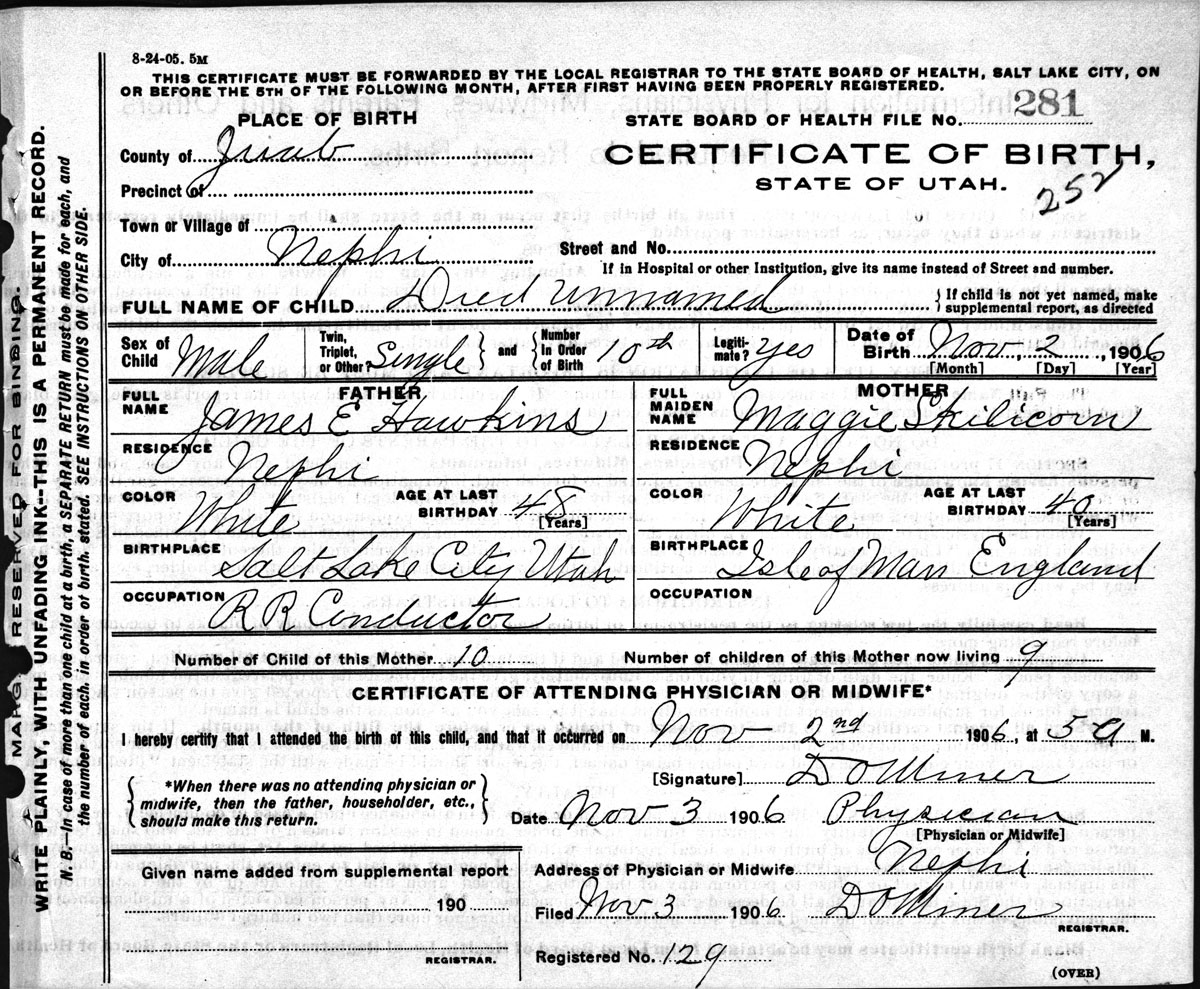 8-24-05. 5M
THIS CERTIFICATE MUST BE FORWARDED BY THE LOCAL REGISTRAR TO THE STATE BOARD OF HEALTH, SALT LAKE CITY, ON
OR BEFORE THE 5TH OF THE FOLLOWING MONTH, AFTER FIRST HAVING BEEN PROPERLY REGISTERED.
PLACE OF BIRTH
STATE BOARD OF HEALTH FILE No. 281
County of Juab
CERTIFICATE OF BIRTH,
Precinct of
STATE OF UTAH.
252
Town or Village of
City of Nephi
Street and No.
If in Hospital or other Institution, give its name instead of Street and number.
FULL NAME OF CHILD Died unnamed { If child is not yet named, make supplemental report, as directed
Sex of Child Male
Twin, Triplet, or Other Single } and { Number In Order of Birth 10th
Legiti-mate? Yes
Date of Birth Nov, 2, 1906
[Month] [Day] [Year]
FATHER
FULL NAME James E Hawkins
RESIDENCE Nephi
COLOR White
AGE AT LAST BIRTHDAY 48
[Years]
BIRTHPLACE Salt Lake City Utah
OCCUPATION R R Conductor
MOTHER
FULL MAIDEN NAME Maggie Skilicorn
RESIDENCE Nephi
COLOR White
AGE AT LAST BIRTHDAY 40
[Years]
BIRTHPLACE Isle of Man England
OCCUPATION
Number of Child of this Mother 10
Number of children of this Mother now living 9
CERTIFICATE OF ATTENDING PHYSICIAN OR MIDWIFE*
I hereby certify that I attended the birth of this child, and that it occurred on Nov 2nd 1906, at 5 a M.
[Signature]
{ *When there was no attending physician or midwife, then the father, householder, etc., should make this return. }
Date Nov 3 1906 Physician
[Physician or Midwife]
Given name added from supplemental report
190
REGISTRAR.
Address of Physician or Midwife Nephi
Filed Nov 3 1906
REGISTRAR.
Registered No. 129
(OVER)
A MARGIN RESERVED FOR BINDING.
WRITE PLAINLY, WITH UNFADING INK--THIS IS A PERMANENT RECORD.
N. B.--In case of more than one child at a birth a SEPARATE RETURN must be made for each, and
the number of each, in order of birth, stated. SEE INSTRUCTIONS ON OTHER SIDE.